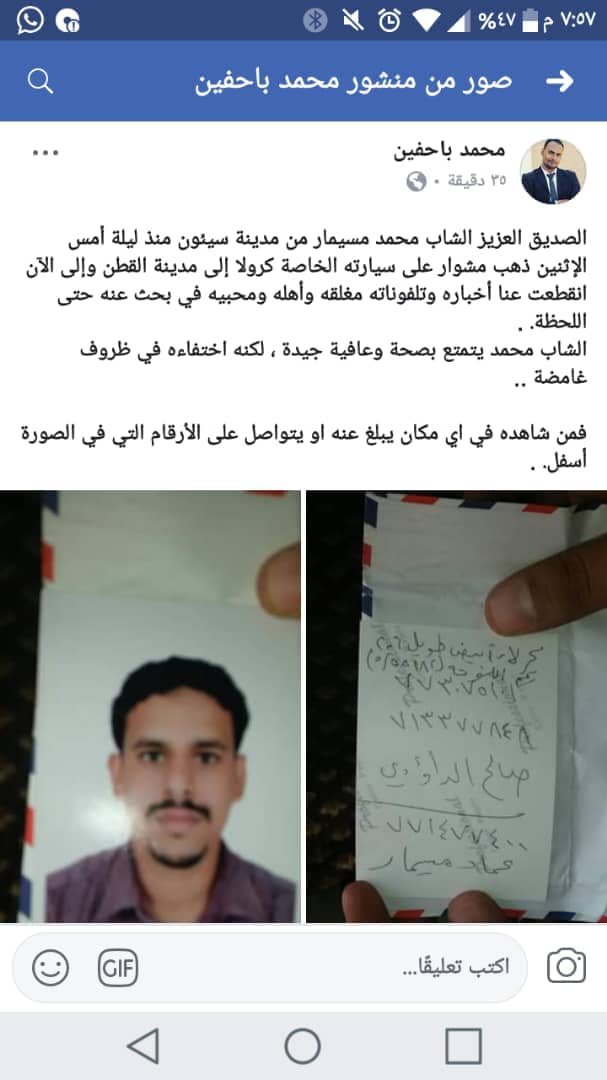 ٧:٥٧ م ٤٧%
صور من منشور محمد باحفين
محمد باحفين
٣٥ دقيقة
الصديق العزيز الشاب محمد مسيمار من مدينة سيئون منذ ليلة أمس
الإثنين ذهب مشوار على سيارته الخاصة كرولا إلى مدينة القطن وإلى الآن
انقطعت عنا أخباره وتلفوناته مغلقه وأهله ومحبيه في بحث عنه حتى
اللحظة. .
الشاب محمد يتمتع بصحة وعافية جيدة ، لكنه اختفاءه في ظروف
غامضة ..
فمن شاهده في اي مكان يبلغ عنه او يتواصل على الأرقام التي في الصورة
أسفل. .
أبيض طويل
صالح الداؤدي
اكتب تعليقًا...
GIF